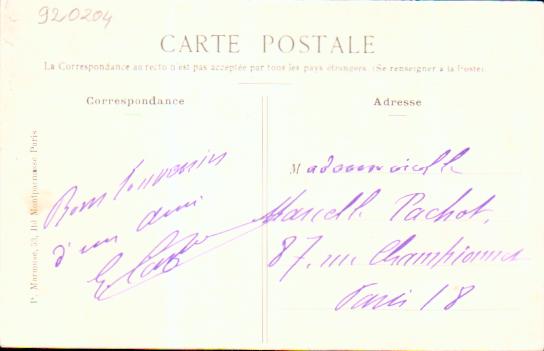 920204
CARTE POSTALE
La Correspondance au recto n'est pas acceptée par tous les pays étrangers (Se renseigner à la Poste)
Correspondance
Adresse
Bons Souvenirs
d'un ami
Mademoiselle
Marcelle Pachot,
87, rue Championnet
Paris 18
P. Marmuse, 53, Bd Montparnasse Paris